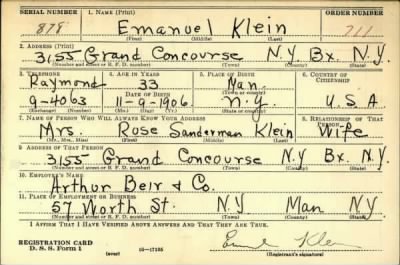 SERIAL NUMBER 1. NAME (Print) ORDER NUMBER
878 Emanuel Klein 711
(First) (Middle) (Last)
2. ADDRESS (Print)
3155 Grand Concourse N.Y. Bx. N.Y.
(Number and street or R. F. D. number) (Town) (County) (State)
3. TELEPHONE 4. AGE IN YEARS 5. PLACE OF BIRTH 6. COUNTRY OF CITIZENSHIP
Raymond 33 Man.
DATE OF BIRTH
9-4063 11-9-1906 N.Y. U.S.A
(Exchange) (Number) (Mo.) (Day) (Yr.) (State or country)
7. NAME OF PERSON WHO WILL ALWAYS KNOW YOUR ADDRESS 8. RELATIONSHIP OF THAT PERSON
Mrs. Rose Sanderman Klein Wife
(Mr., Mrs., Miss) (First) (Middle) (Last)
9. ADDRESS OF THAT PERSON
3155 Grand Concourse N.Y Bx. N.Y.
(Number and street or R. F. D. number) (Town) (County) (State)
10. EMPLOYER'S NAME
Arthur Beir & Co.
11. PLACE OF EMPLOYMENT OR BUSINESS
57 Worth St. N.Y Man N.Y
(Number and street or R. F. D. number) (Town) (County) (State)
I AFFIRM THAT I HAVE VERIFIED ABOVE ANSWERS AND THAT THEY ARE TRUE.
REGISTRATION CARD
D. S. S. Form 1 (over) 16—17105 (Registrant's signature)